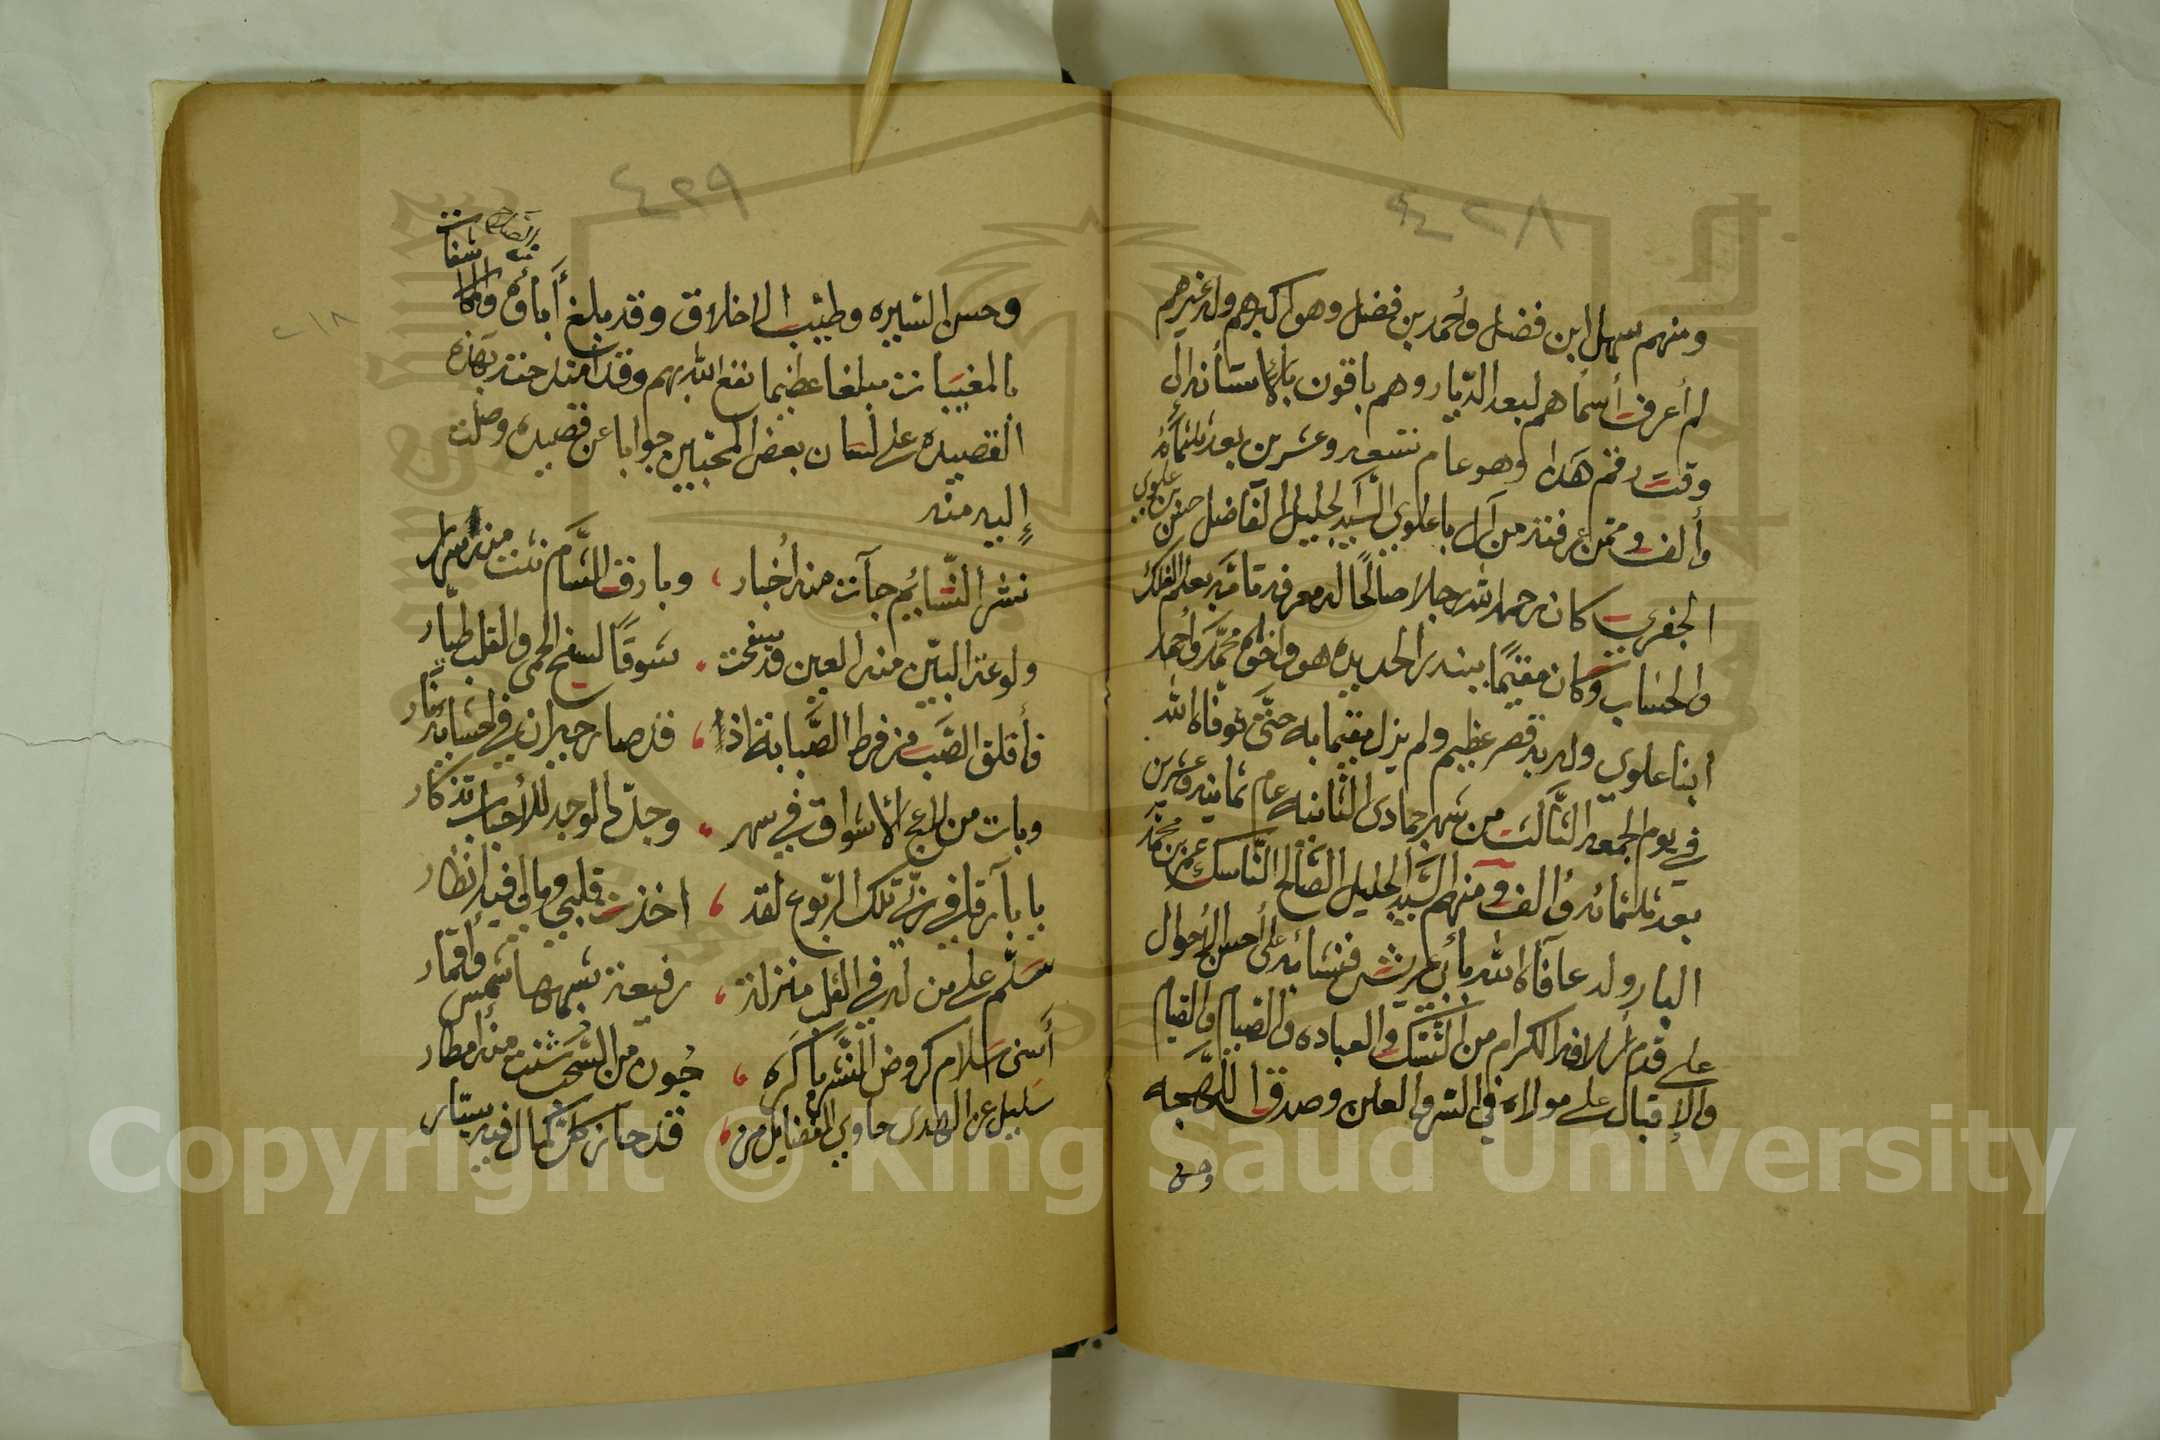 ٤٢٨
ومنهم سهل ابن فضل وأحمد بن فضل وهو أكبرهم ولد غيرهم
لم أعرف أسماهم لبعد الديار وهم باقون بالاستانه الى
وقت رقم هذا وهو عام تسعه وعشرين بعد ثلثمائه
وألف وممن عرفته من آل باعلوي السيد الجليل الفاضل حسن بن علوي
الجفري كان رحمه الله رجلا صالحًا له معرفه تامّه بعلم الفلك
والحساب وكان مقيمًا ببندر الحديده هو واخوه محمّد واحمد
ابنا علوي وله به قصر عظيم ولم يزل مقيما به حتّى توفّاه الله
في يوم الجمعه الثّالث من شهر جمادى الثّانيه عام ثمانيه وعشرين
بعد ثلثمائه والف ومنهم السّيد الجليل الصّالح النّاسك عمر بن محمّد
البار ولد عافاه الله بأبي عريش فنشا به على أحسن الأحوال
على قدم أسلافه الكرام من التّنسّك والعباده والصّيام والقيام
والإقبال على مولاه في السّر والعلن وصدق اللّهجه
وحسن
٤٢٩
٢١٨
وحسن السّيره وطيب الاخلاق وقد بلغ أباؤه والمكاشفات
بالمغيبات مبلغا عظيما نفع الله بهم وقد امتدحته بهذه
القصيده على لسان بعض المحبّين جوابا عن قصيده وصلت
إليه منه
نشر النّسايم جآت منه أخبار ، وبارق الشّام نمّت منه أسرار
ولوعة البيّن منه العين قد سفحت ، شوقًا لسفح الحمى والقلب طيّار
فأقلق الصّب من فرط الصّبابة اذا ، قد صار جيران في احشايه نار
وبات من لاعج الاشواق في سهر ، وجدّ لها لوجد للأحباب تذكار
يا بآرقا في ربى تلك الرّبوع لقد ، اخذت قلبي ومالي فيه انظار
سلّم على من له في القلب منزلة ، رفيعة بسمها شمس وأقمار
أسنى سلام كروض النّشر باكره ، جُون من السّحب شنّت منه امطار
سليل عن الهدى حاوي الفضايل من ، قد حاز كلّ كمال فيه سيّار